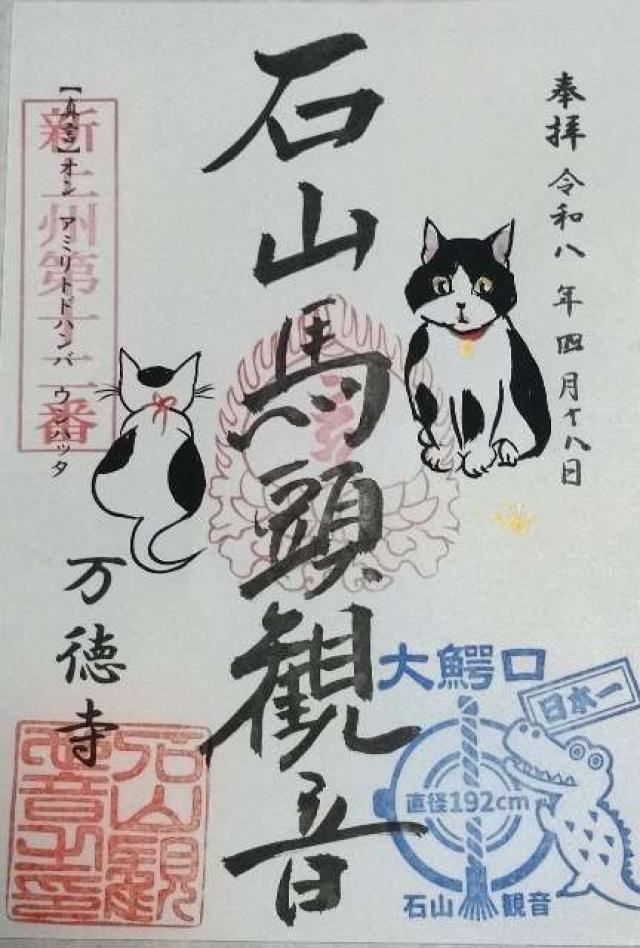 奉拝 令和八年四月十八日
石山馬頭観音
新上州第十二番
【真言】オン アミリトドハンバ ウンハッタ
万徳寺
大鰐口
日本一
直径192cm
石山 観音
石山観音之印